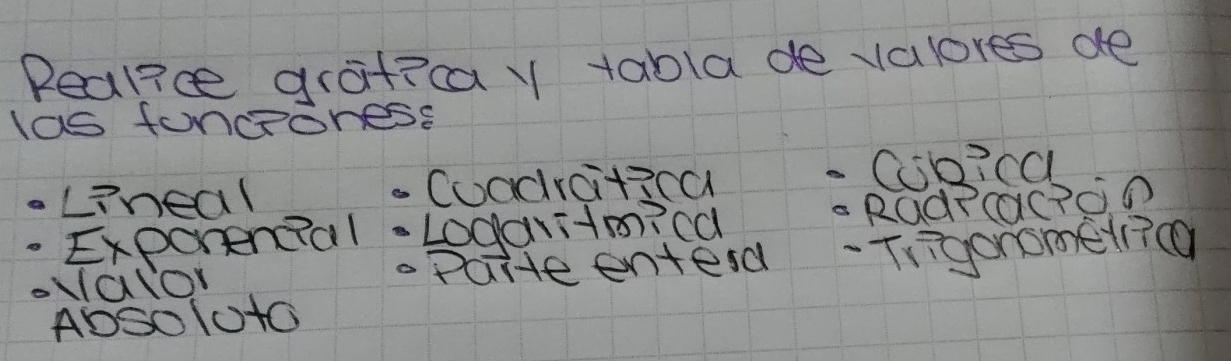 Realice gráfica y tabla de valores de
las funciones:
• Lineal • Cuadrática • Cúbica
• Exponencial • Logaritmica • Radicación
• Valor Absoluto • Parte entera • Trigonométrica